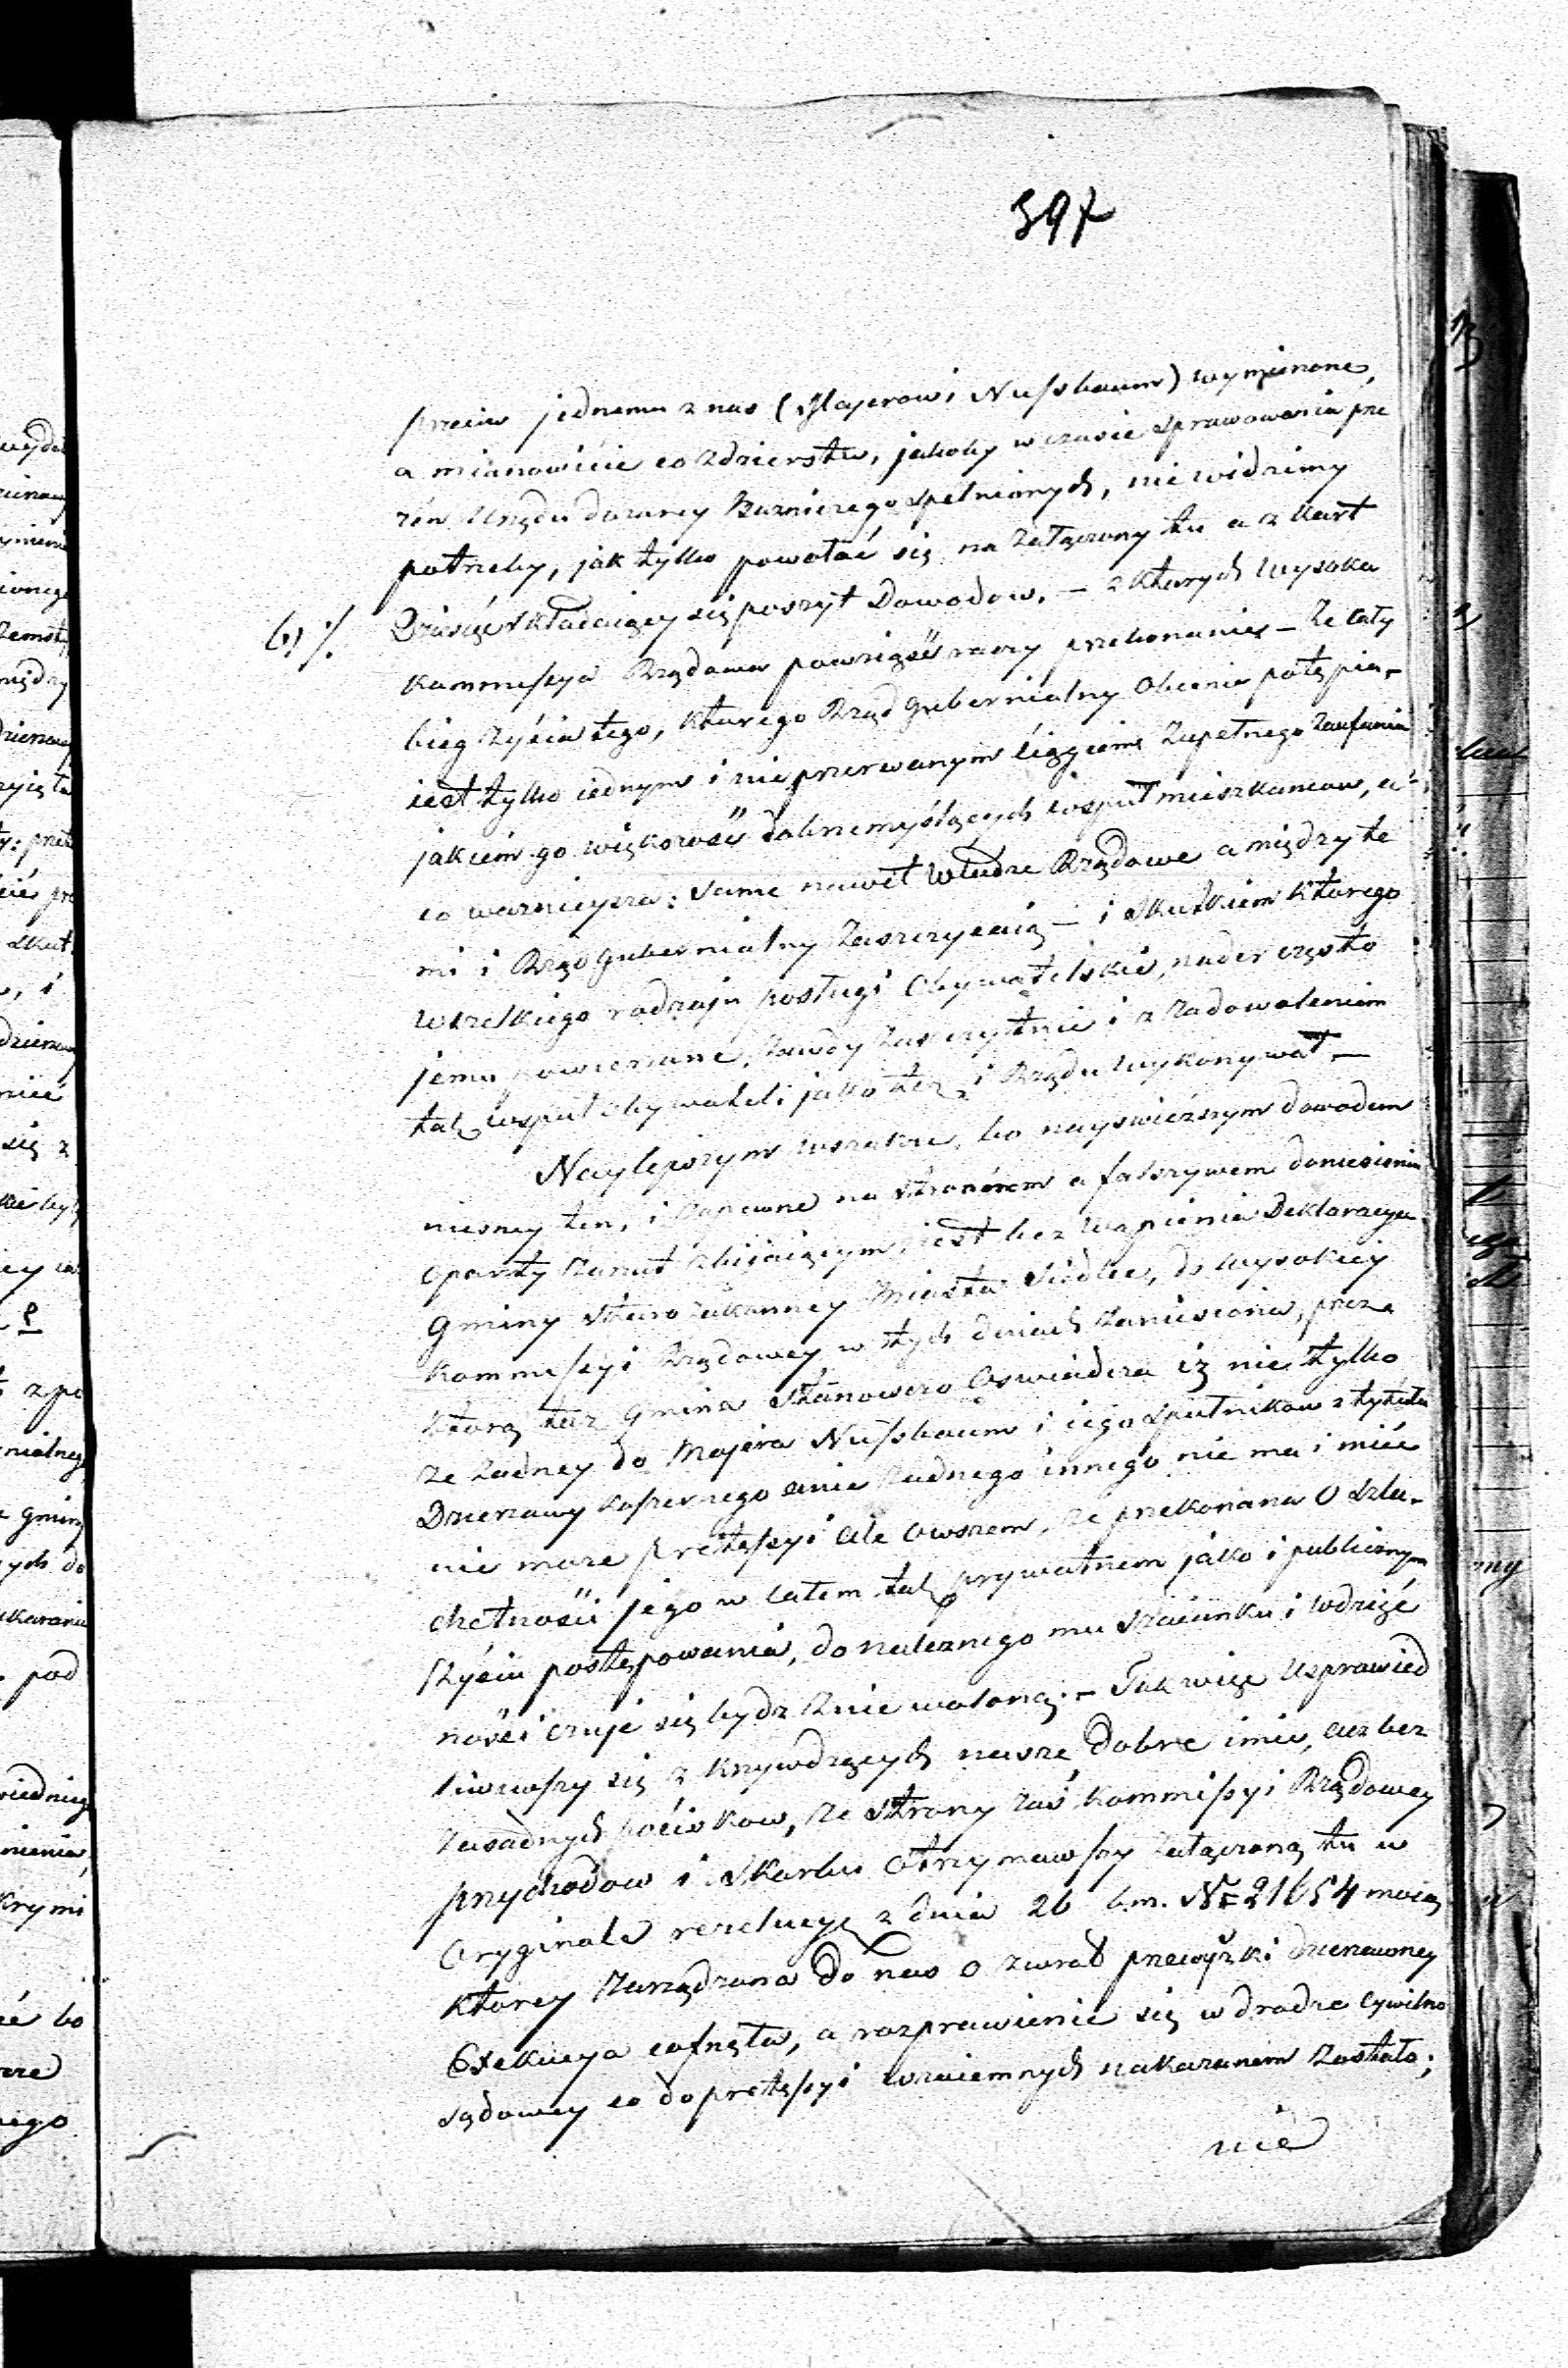 397
przeciw jednemu z nas (Majerowi Nussbaum) wymienone,
a mianowicie co zdzierstw, jakoby w czasie sprawowania prze
zeń Urzędu dozorcy Bużniczego spełnionych, nie widzimy
potrzeby, jak tylko powołać się na załączony tu a z kart
6) ./. Dziesięć składaiący się poszyt Dowodow. – z których Wysoka
Kommissya Rządowa powziąść raczy przekonanie – że cały
bieg życia tego, którego Rząd Gubernialny Obecnie potępia,–
iest tylko iednym i nieprzerwanym ciągiem zupełnego zaufania
jakiem go większość dobrze myślących wspułmieszkancow, a
co ważnieysza: same nawet Władze Rządowe a między te
mi i Rząd Gubernialny zaszczycaią – i skutkiem którego
wszelkiego rodzaju posługi Obywatelskie, nader często
jemu powierzane, zawdy zaszczytnie i z zadowoleniem
tak wspułobywateli jako też i Rządu wykonywał. –
Naylepszym wszakże, bo nayswieższym dowodem
niesney ten, i zapewne na stronném a fałszywem doniesieniu
oparty zarut zbijaiącym, iest bez wąpienia Deklaracya
Gminy Starozakonney Miasta Siedlec, do Wysokiey
Kommissyi Rządowey w tych dniach zaniesiona, przez
którą taż Gmina stanowczo Oswiadcza iż nie tylko
że żadney do Majera Nussbaum i iego spulnikow z tytułu
Dzierżawy koszernego anie żadnego innego nie ma i mieć
nie może pretessyi ale owszem, że przekonana o szla-
chetności jego w całem tak prywatnem jako i publicznym
życiu postępowania, do należnego mu szacunku i wdzię
ności czuje się bydz zniewoloną. – Tak więc usprawied
liwiwszy się z krzywdzących nasze dobre imie, acz bez
zasadnych pocisków, ze strony zaś Kommissyi Rządowey
przychodow i Skarbu otrzymawszy załączoną tu w
Oryginale rezolucyę z dnia 26 b.m. № 21654 mocą
którey zarządzona do nas o zwrot przewyżki dzierżawney
Exekucya cofnęta, a rozprawienie się w drodze cywilno
sądowey co do pretessyi wzaiemnych nakazanem zostało;
nie